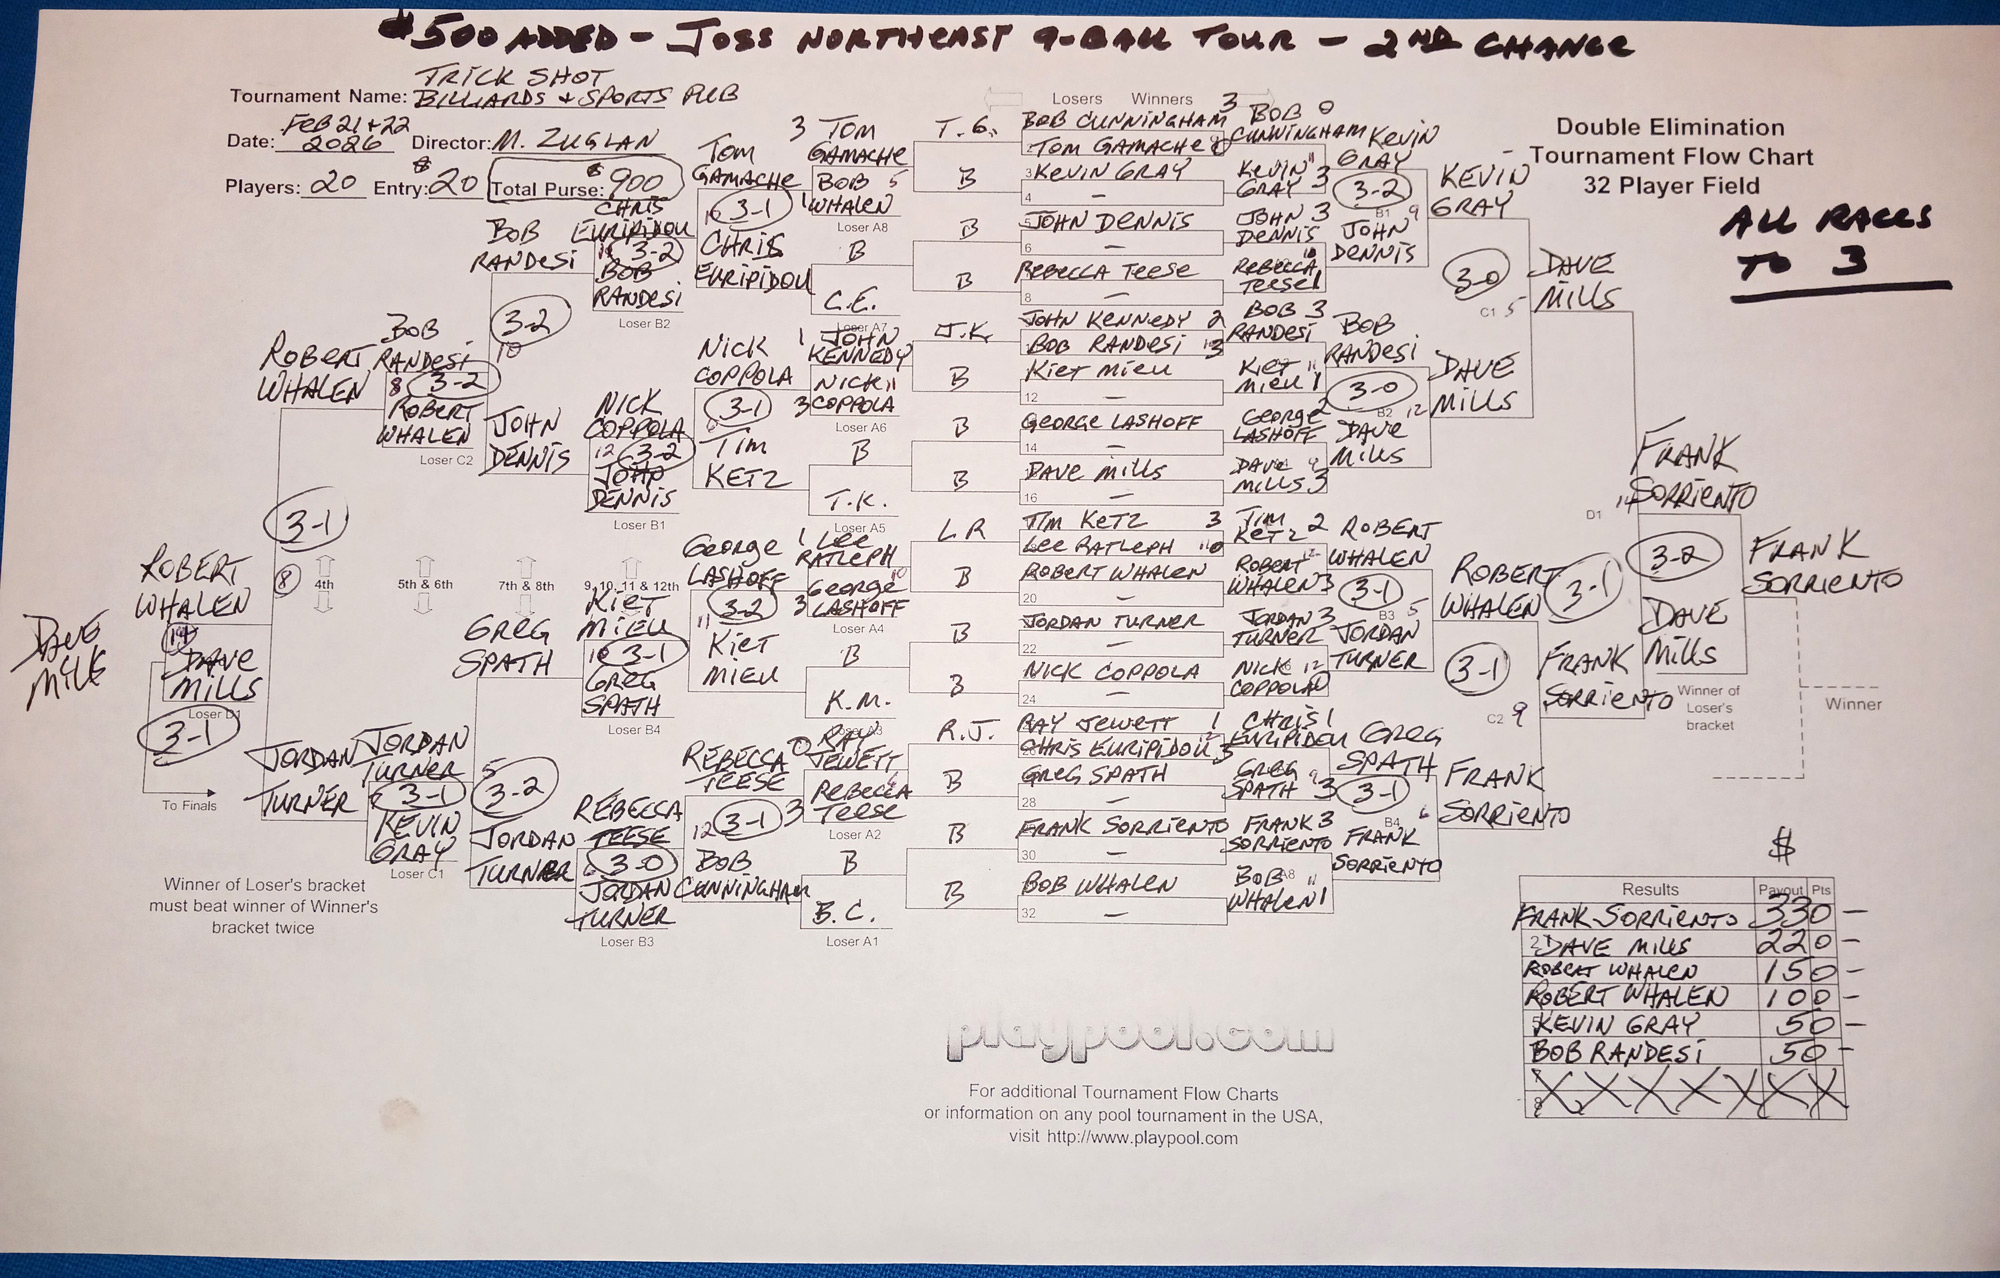 $500 ADDED - JOSS NORTHEAST 9-BALL TOUR - 2ND CHANCE
TRICK SHOT
Tournament Name: BILLIARDS + SPORTS PUB
FEB 21+22
Date: 2026 Director: M. ZUGLAN
Players: 20 Entry: $20 Total Purse: $900
Losers Winners
Double Elimination
Tournament Flow Chart
32 Player Field
ALL RACES
TO 3
BOB CUNNINGHAM 3
2 TOM GAMACHE 0
3 KEVIN GRAY
4 —
5 JOHN DENNIS
6 —
REBECCA TEESE
8 —
JOHN KENNEDY 2
BOB RANDESI 3
KIET MIEU
12 —
GEORGE LASHOFF
14 —
DAVE MILLS
16 —
TIM KETZ 3
LEE RATLEPH 0
ROBERT WHALEN
20 —
JORDAN TURNER
22 —
NICK COPPOLA
24 —
RAY JEWETT 1
CHRIS EURIPIDOU 3
GREG SPATH
28 —
FRANK SORRIENTO
30 —
BOB WHALEN
32 —
BOB 0
CUNNINGHAM
KEVIN 11
GRAY 3
JOHN 3
DENNIS
REBECCA 10
TEESE 1
BOB 3
RANDESI
KIET 11
MIEU 1
GEORGE 2
LASHOFF
DAVE 9
MILLS 3
TIM 2
KETZ
ROBERT 12
WHALEN 3
JORDAN 3
TURNER
NICK 12
COPPOLA 0
CHRIS 1
EURIPIDOU
GREG 9
SPATH 3
FRANK 3
SORRIENTO
BOB A8 11
WHALEN 1
KEVIN
GRAY
3-2
B1 9
JOHN
DENNIS
BOB
RANDESI
3-0
B2 12
DAVE
MILLS
ROBERT
WHALEN
3-1
B3 5
JORDAN
TURNER
GREG
SPATH
3-1
B4 6
FRANK
SORRIENTO
KEVIN
GRAY
3-0
C1 5
DAVE
MILLS
ROBERT
WHALEN
3-1
C2 9
FRANK
SORRIENTO
DAVE
MILLS
3-1
D1 11
FRANK
SORRIENTO
FRANK
SORRIENTO
3-2
DAVE
MILLS
Winner of
Loser's
bracket
FRANK
SORRIENTO
Winner
T. G.
B
B
B
J.K.
B
B
B
L R
B
B
B
R.J.
B
B
B
3 TOM
GAMACHE
BOB 5
WHALEN 1
Loser A8
B
C.E.
Loser A7
1 JOHN
KENNEDY
NICK 11
3 COPPOLA
Loser A6
B
T.K.
Loser A5
1 LEE
RATLEPH
GEORGE 10
3 LASHOFF
Loser A4
B
K.M.
Loser A3
0 RAY
JEWETT
REBECCA 6
3 TEESE
Loser A2
B
B.C.
Loser A1
TOM
GAMACHE
10 3-1
CHRIS
EURIPIDOU
NICK
COPPOLA
3-1
TIM
KETZ
GEORGE
LASHOFF
11 3-2
KIET
MIEU
REBECCA
TEESE
12 3-1
BOB
CUNNINGHAM
CHRIS
EURIPIDOU
11 3-2
BOB
RANDESI
Loser B2
NICK
COPPOLA
12 3-2
JOHN
DENNIS
Loser B1
KIET
MIEU
10 3-1
GREG
SPATH
Loser B4
REBECCA
TEESE
3-0
JORDAN
TURNER
Loser B3
BOB
RANDESI
3-2
10
JOHN
DENNIS
GREG
SPATH
5 3-2
JORDAN
TURNER
BOB
RANDESI
8 3-2
ROBERT
WHALEN
Loser C2
JORDAN
TURNER
3-1
KEVIN
GRAY
Loser C1
ROBERT
WHALEN
3-1
8
JORDAN
TURNER
4th 5th & 6th 7th & 8th 9, 10, 11 & 12th
ROBERT
WHALEN
DAVE
MILLS
Loser D1
3-1
DAVE
MILLS
To Finals
Winner of Loser's bracket
must beat winner of Winner's
bracket twice
$
Results Payout Pts
FRANK SORRIENTO 330 —
2 DAVE MILLS 220 —
ROBERT WHALEN 150 —
ROBERT WHALEN 100 —
5 KEVIN GRAY 50 —
BOB RANDESI 50 —
7 XXXXXXX
8
playpool.com
For additional Tournament Flow Charts
or information on any pool tournament in the USA,
visit http://www.playpool.com